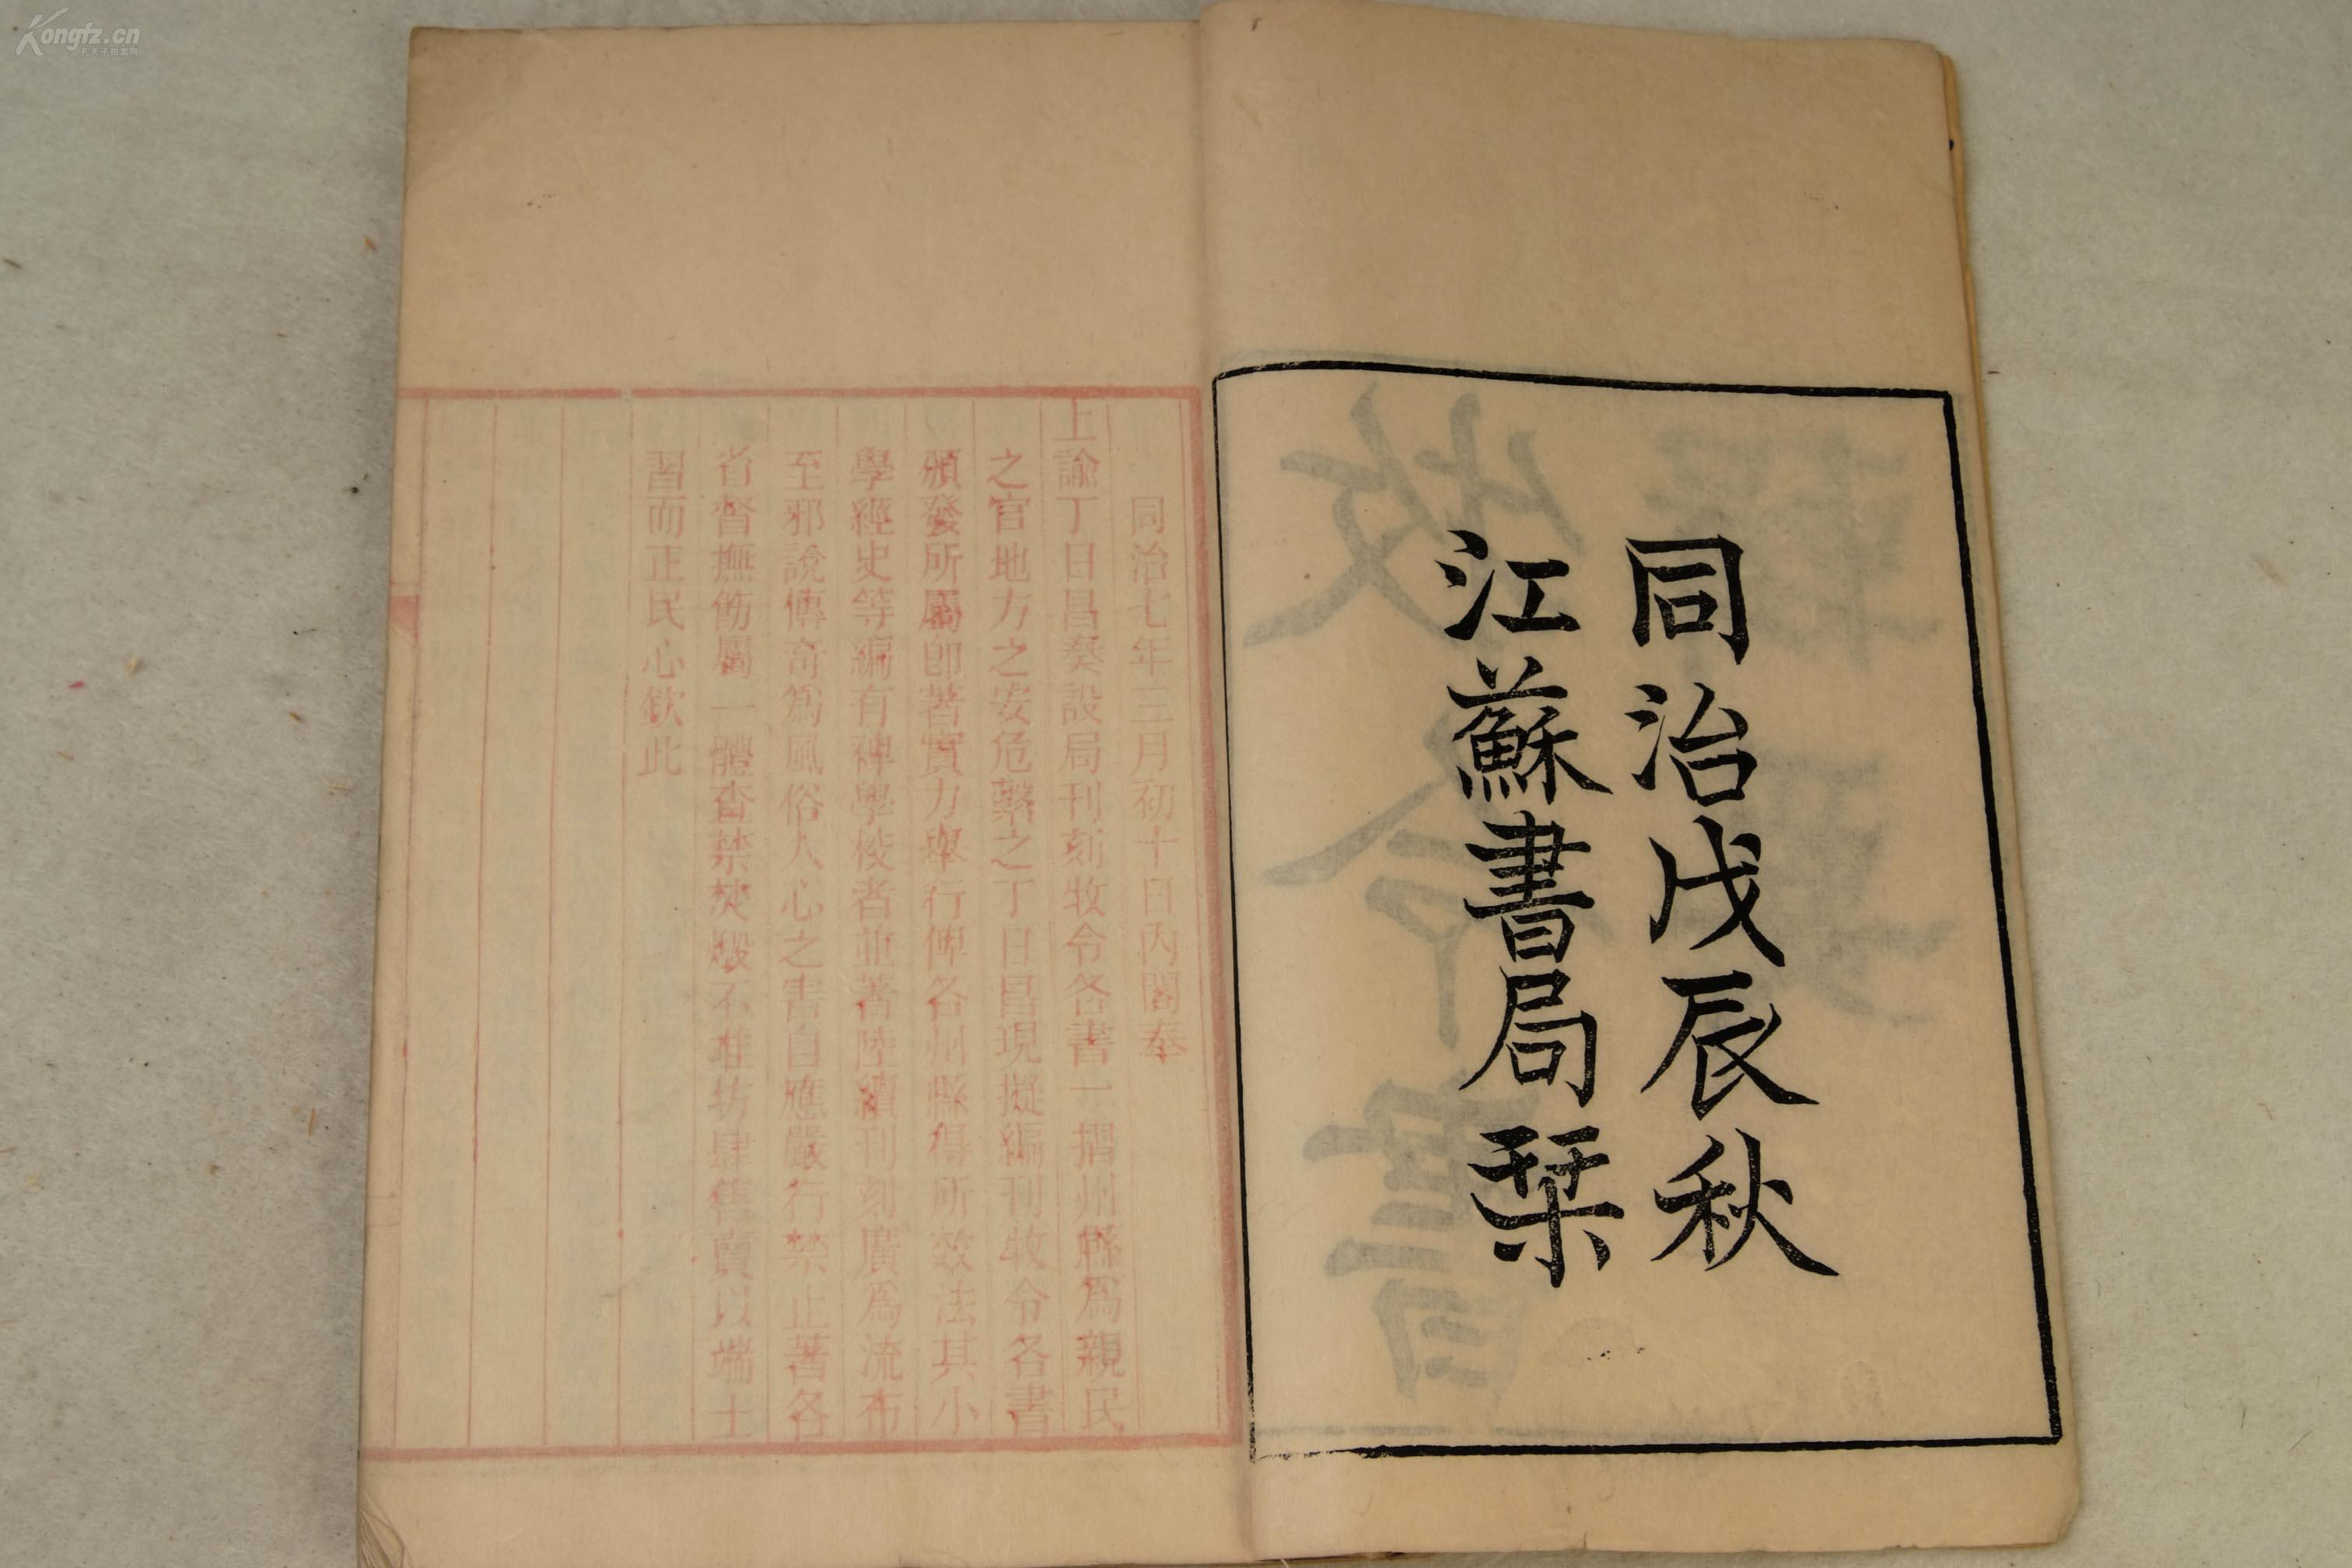 同治戊辰秋
江蘇書局栞
同治七年三月初十日內閣奉
上諭丁日昌奏設局刊刻牧令各書一摺州縣爲親民
之官地方之安危繫之丁日昌現擬編刊牧令各書
頒發所屬卽著實力舉行俾各州縣得所效法其小
學經史等編有裨學校者並著陸續刊刻廣爲流布
至邪說傳奇爲風俗人心之害自應嚴行禁止著各
省督撫飭屬一體查禁焚燬不准坊肆售賣以端士
習而正民心欽此
Kongfz.cn